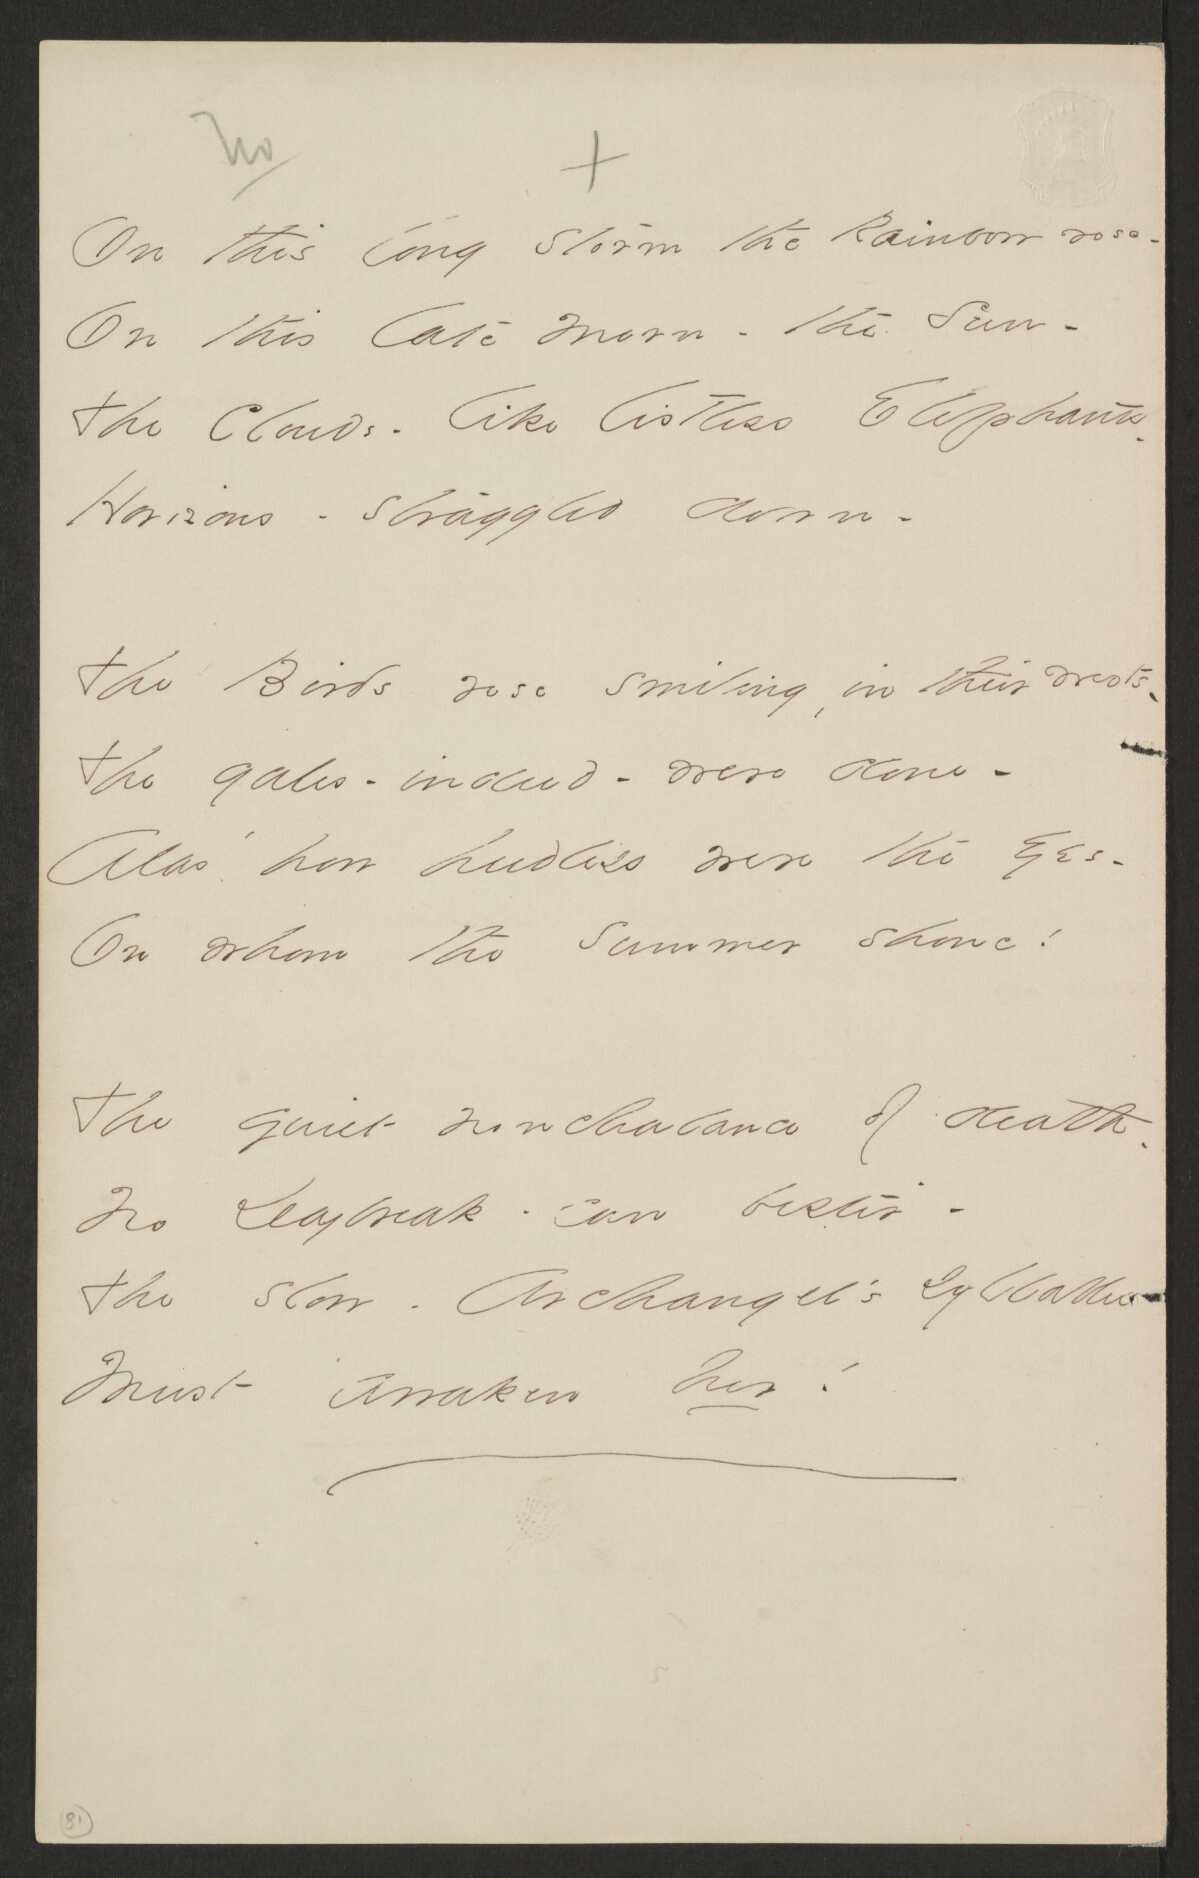 No
+
On this long storm the Rainbow rose -
On this late morn - the Sun -
The Clouds - like listless Elephants -
Horizons - straggled down -
The Birds rose smiling, in their nests -
The gales - indeed - were done -
Alas, how heedless were the eyes -
On whom the summer shone!
The quiet nonchalance of death -
No Daybreak - can bestir -
The slow - Archangel's syllables
Must awaken her!
81